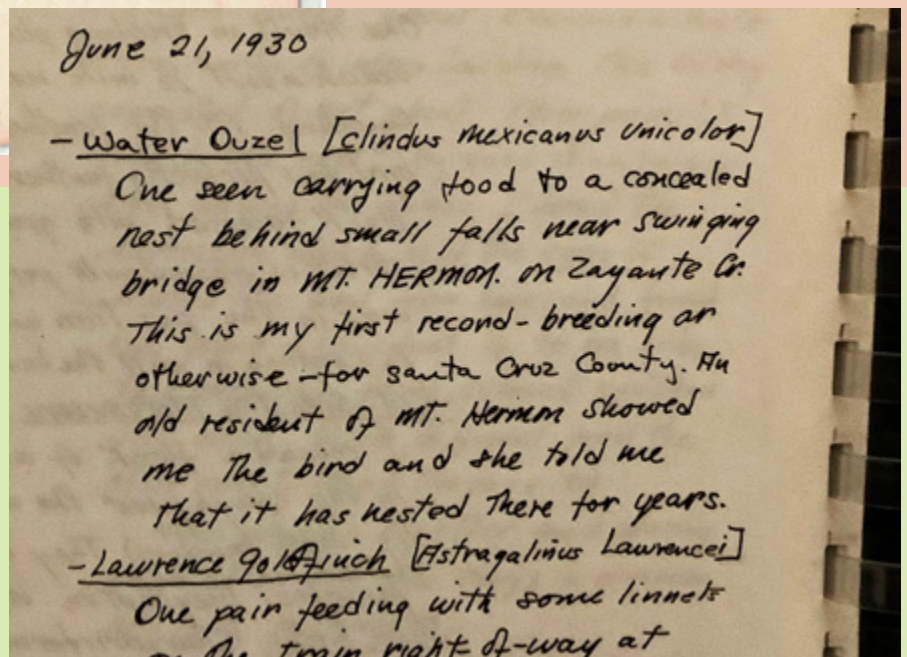 June 21, 1930
- Water Ouzel [Clindus mexicanus unicolor]
One seen carrying food to a concealed
nest behind small falls near swinging
bridge in MT. HERMON. on Zayante Cr.
This is my first record - breeding or
otherwise - for Santa Cruz County. An
old resident of MT. Hermon showed
me the bird and she told me
that it has nested there for years.
- Lawrence goldfinch [Astragalinus Lawrencei]
One pair feeding with some linnets
the train right of-way at